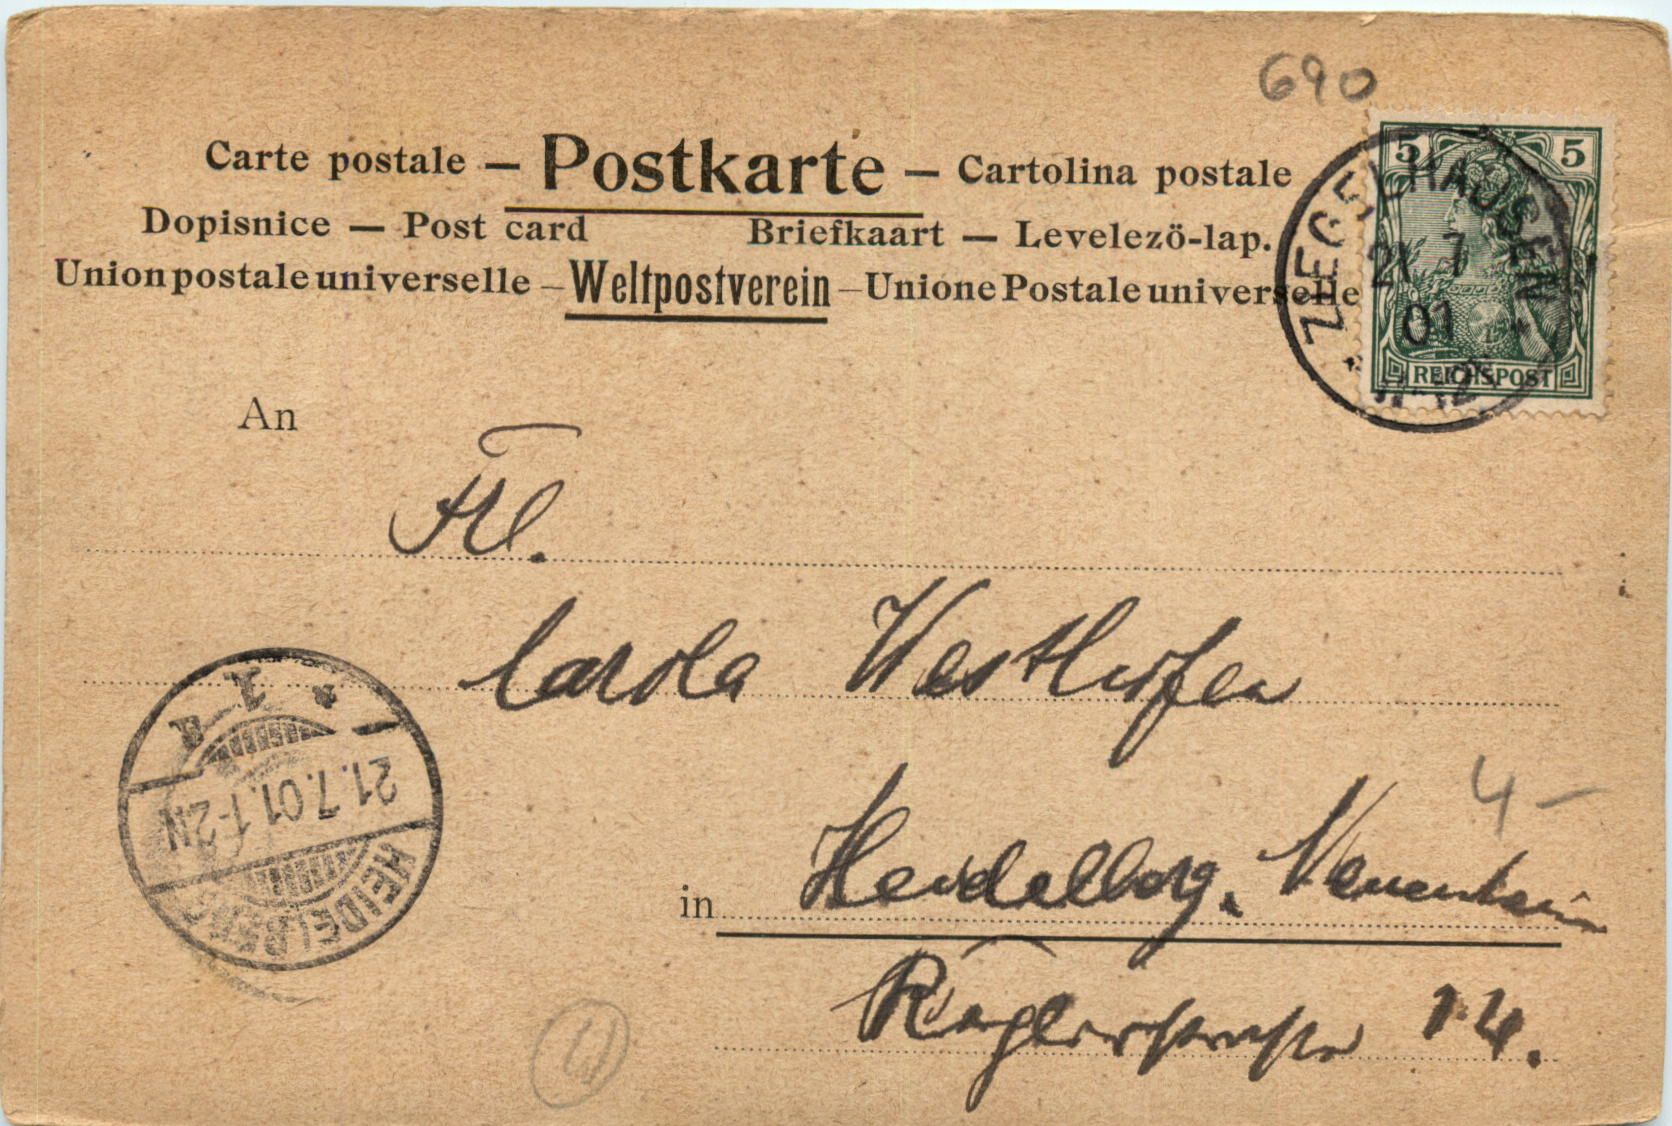 690
Carte postale — Postkarte — Cartolina postale
Dopisnice — Post card Briefkaart — Levelezö-lap.
Union postale universelle — Weltpostverein — Unione Postale universelle
5 5
ZIEGELHAUSEN
21 7
01
11-12
REICHSPOST
An
Frl.
Carola Westhofen
* 1. a
21.7.01.1-2N
HEIDELBERG
4 -
in Heidelberg. Neuenheim
14.